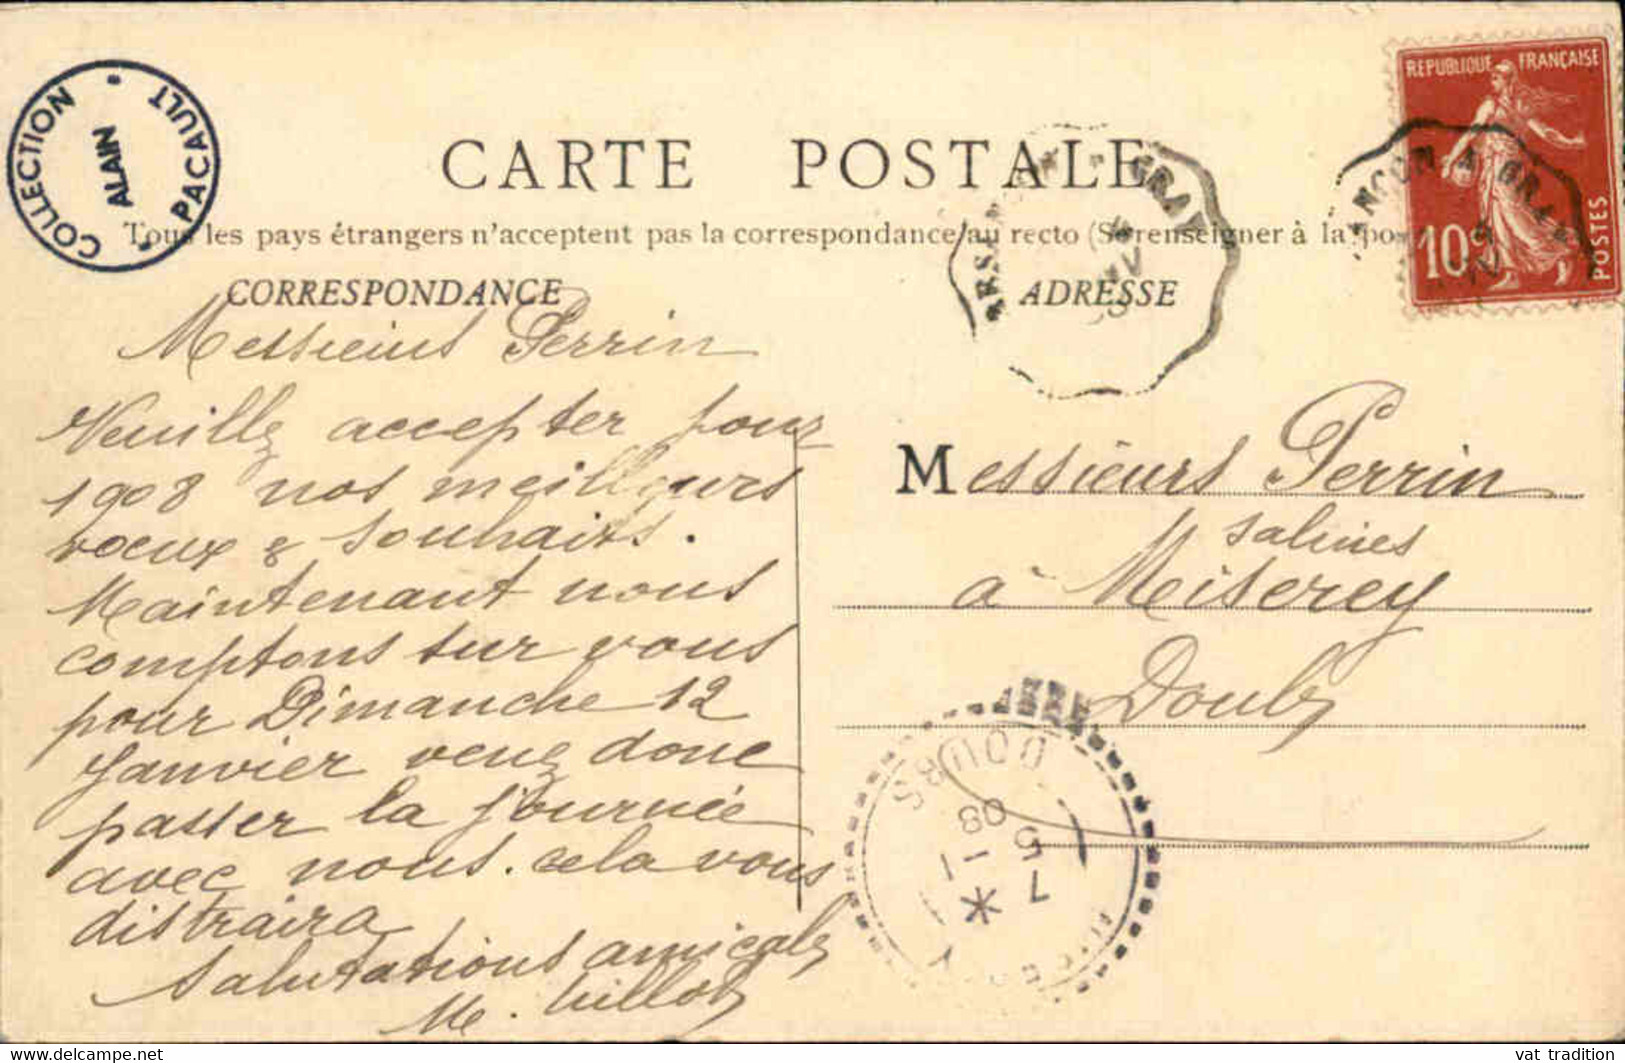 COLLECTION ALAIN PACAULT
REPUBLIQUE FRANÇAISE
10c
POSTES
CARTE POSTALE
Tous les pays étrangers n'acceptent pas la correspondance au recto (Se renseigner à la
CORRESPONDANCE
ADRESSE
GRAY
A GRAY
Messieurs Perrin
Veuillez accepter pour
1908 nos meilleurs
voeux & souhaits.
Maintenant nous
comptons sur vous
pour Dimanche 12
Janvier venez donc
passer la journée
avec nous. cela vous
distraira
Salutations amicales
M.
Messieurs Perrin
Salines
à Miserey
Doubs
DOUBS
7 5
-1
08
vat tradition